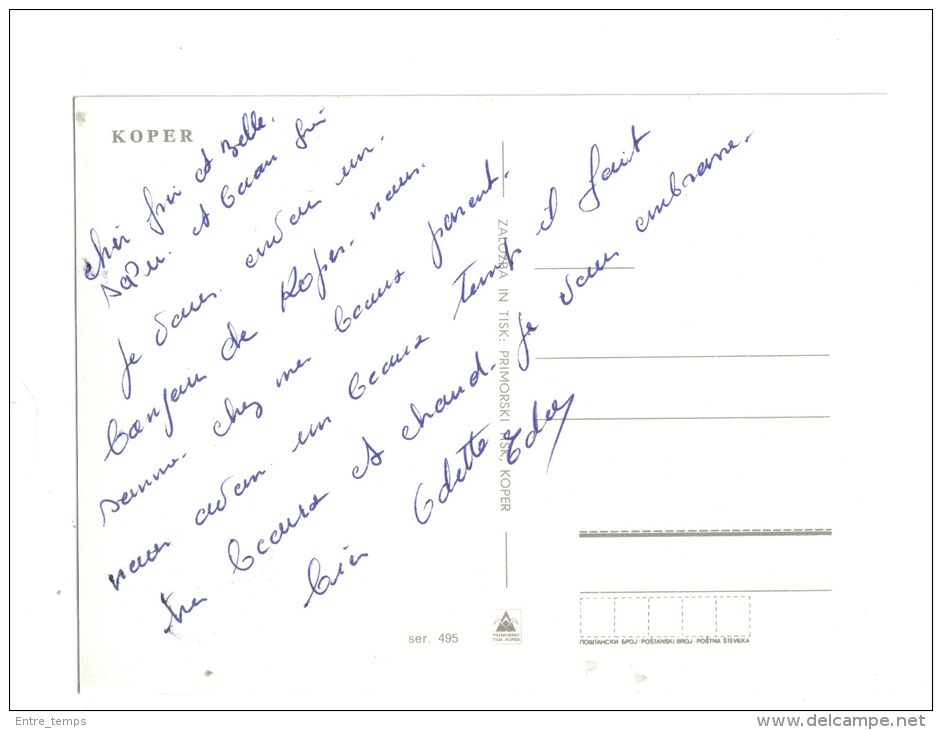 KOPER
cher frri et Belle.
sœur. et beau frri
je vous. anvou un.
bonjour de Koper. nous.
somme. chez mes beaux parent.
nous avon. un beaux temps il fait
tres beaux et chaud. je vous embrasse.
bien Odette Edo
ZALOŽBA IN TISK: PRIMORSKI TISK, KOPER
ser. 495
PRIMORSKI
TISK KOPER
ПОШТАНСКИ БРОЈ · POŠTANSKI BROJ · POŠTNA ŠTEVILKA
Entre_temps
www.delcampe.net